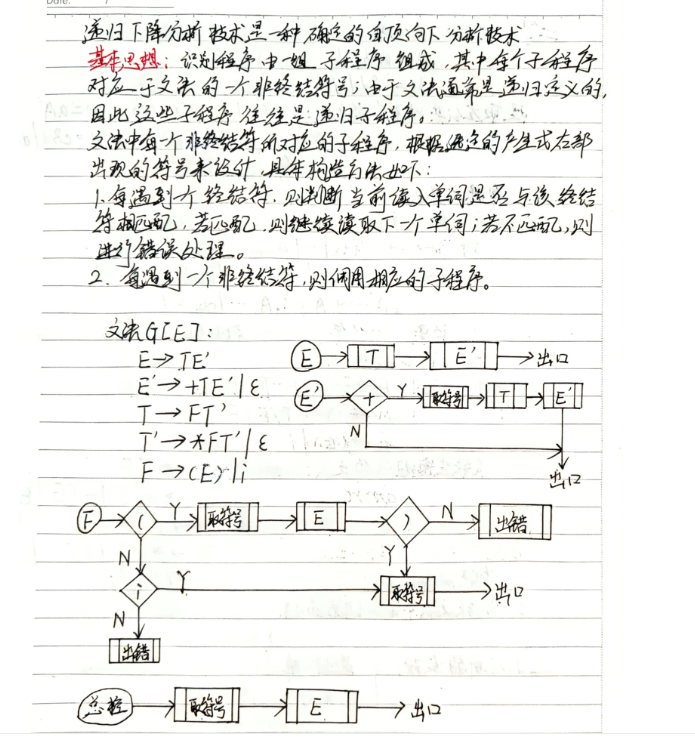 Date:
递归下降分析技术是一种确定的自顶向下分析技术
基本思想：识别程序由一组子程序组成，其中每个子程序
对应于文法的一个非终结符号；由于文法通常是递归定义的，
因此这些子程序往往是递归子程序。
文法中每个非终结符所对应的子程序，根据选定的产生式右部
出现的符号来设计，具体构造方法如下：
1.每遇到一个终结符，则判断当前读入单词是否与该终结
符相匹配，若匹配，则继续读取下一个单词；若不匹配，则
进行错误处理。
2.每遇到一个非终结符，则调用相应的子程序。
文法G[E]：
E→TE'
E'→+TE'|ε
T→FT'
T'→*FT'|ε
F→(E)|i
E T E' 出口
E' + Y 取符号 T E'
N
出口
F ( Y 取符号 E ) N 出错
N Y
i Y 取符号 出口
N
出错
总控 取符号 E 出口